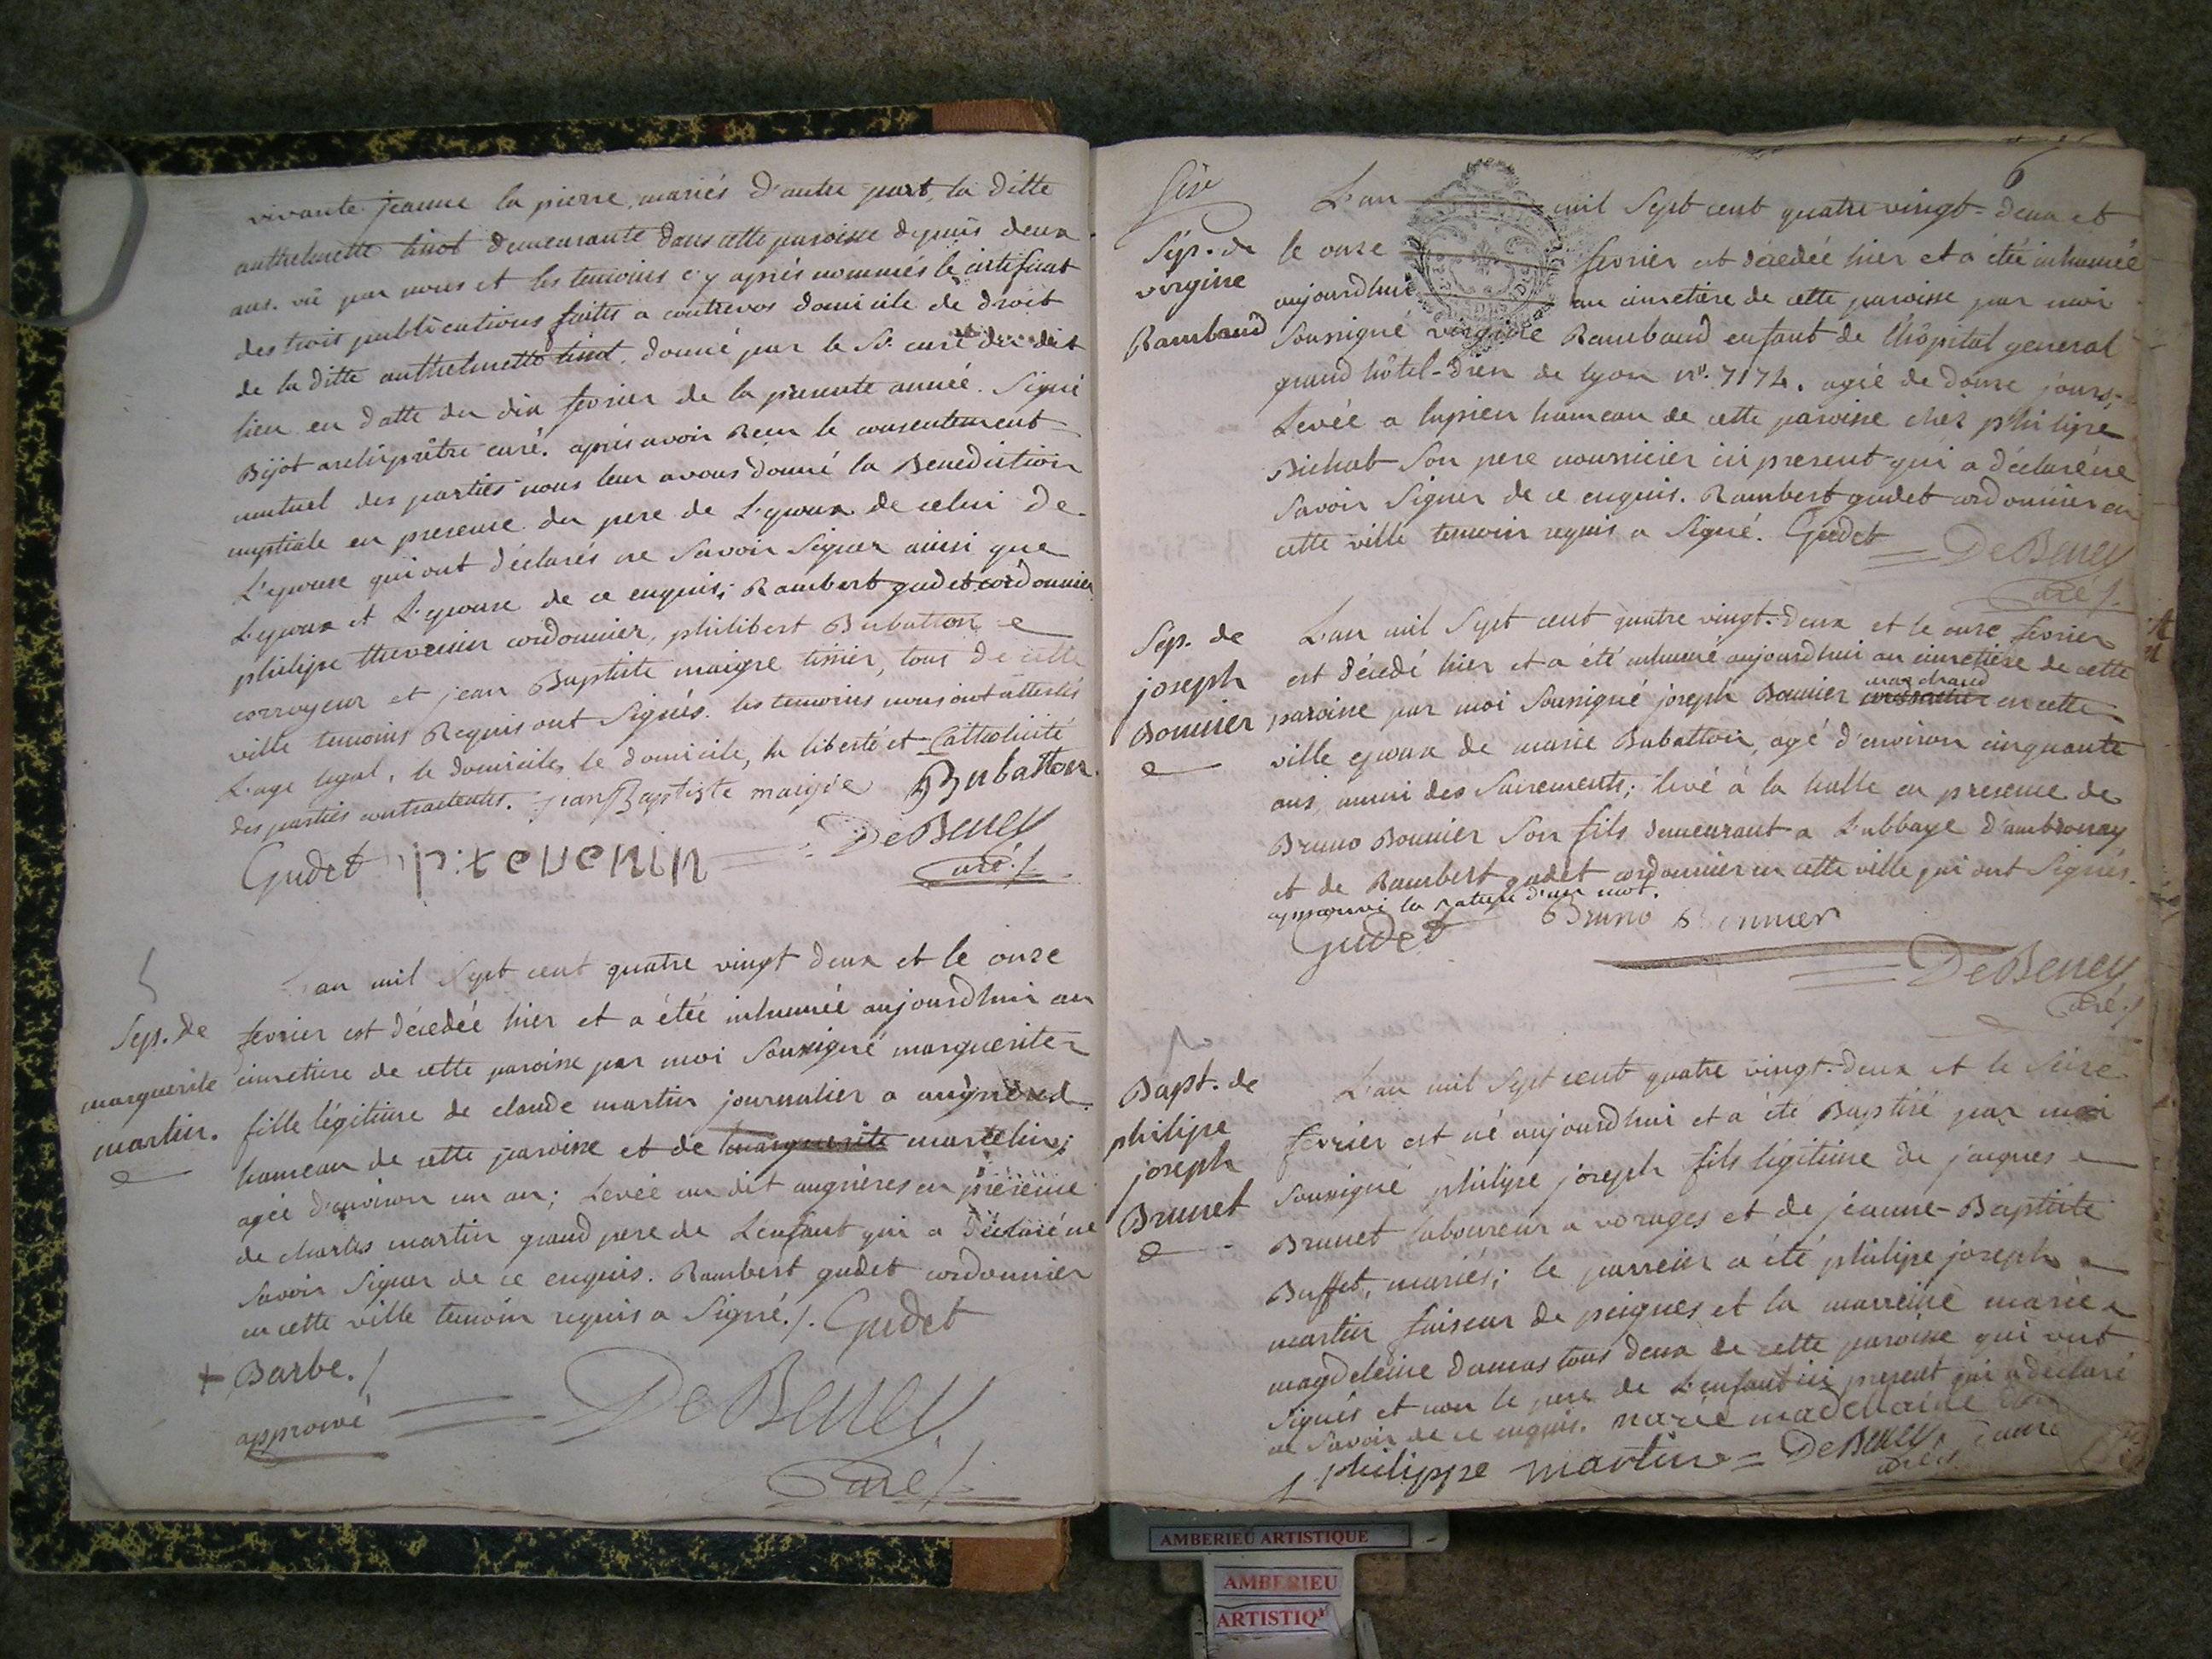 vivante jeanne la pierre, mariés d'autre part, la ditte
anthelmette tinot demeurante dans cette paroisse depuis deux
ans. vû par nous et les temoins c'y après nommés le certificat
des trois publications faittes a contrevos domicile de droit
de la ditte anthelmette tinot, donné par le Sr. curé du dit
lieu en datte du dix fevrier de la presente année. Signé
Bijot archiprêtre curé. après avoir Recu le consentement
mutuel des parties nous leur avons donné la Benediction
nuptiale en presence du pere de L'epoux de celui De
L'epouse qui ont déclarés ne Savoir Signer ainsi que
L'epoux et L'epouse de ce enquis; Rambert gudet cordonnier
philipe thevenin cordonnier, philibert Bubatton
corroyeur et jean Baptiste maigre tissier, tous de cette
ville temoins Requis ont Signés. les temoins nous ont attestés
L'age legal, le domicile, le domicile, la liberté et Catholicité
des parties contractentes. jean Baptiste maigre Bubatton
Gudet p:tevenin DeBeney
curé
L'an mil Sept cent quatre vingt deux et le onze
Sep. de
marguerite
martin.
fevrier est décedée hier et a étée inhumée aujourdhui au
cimetiere de cette paroisse par moi Soussigné marguerite
fille légitime de claude martin journalier a
hameau de cette paroisse et de marguerite marcelin;
agée d'environ un an; Levée au dit augnères en présence
de charles martin grand pere de L'enfant qui a Déclaré ne
Savoir Signer de ce enquis. Rambert gudet cordonnier
en cette ville temoin requis a Signé./. Gudet
+ Barbe./
approuvé
DeBeney
Curé
6
Sixe
Sép. de
virgine
Rambaud
L'an mil Sept cent quatre vingt-deux et
le onze fevrier est décedée hier et a étée inhumée
aujourdhui au cimetiere de cette paroisse par moi
Soussigné virginie Rambaud enfant de l'hôpital general
grand hôtel-Dieu de lyon no. 7174. agée de douze jours,
Levée a hameau de cette paroisse chez philipe
Bichat Son pere nourricier ici present qui a déclaré ne
Savoir Signer de ce enquis. Rambert gudet cordonnier en
cette ville temoin requis a Signé. Gudet
DeBeney
curé
Sep. de
joseph
Bonnier
L'an mil Sept cent quatre vingt-deux et le onze fevrier
est décedé hier et a été inhumé aujourdhui au cimetiere de cette
marchand
paroisse par moi Soussigné joseph Bonnier en cette
ville epoux de marie Bubatton, agé d'environ cinquante
ans, muni des Sacrements; levé à la halle en presence de
Bruno Bonnier Son fils demeurant a L'abbaye d'ambronay
et de Rambert gudet cordonnier en cette ville qui ont Signés.
approuvé la rature d'un mot.
Gudet Bruno Bonnier
DeBeney
curé
Bapt. de
philipe
joseph
Brunet
L'an mil Sept cent quatre vingt-deux et le Seize
fevrier est né aujourdhui et a été Baptisé par moi
Soussigné philipe joseph fils légitime de jacques
Brunet laboureur a vorages et de jeanne-Baptiste
Buffet, mariés; le parrein a été philipe joseph
martin faiseur de peignes et la marreine marie
magdeleine Damas tous deux de cette paroisse qui ont
Signés et non le pere de L'enfant ici present qui a declaré
ne Savoir de ce enquis. marie madelaine
philippe martin = DeBeney
curé
AMBERIEU ARTISTIQUE
AMBERIEU
ARTISTIQ